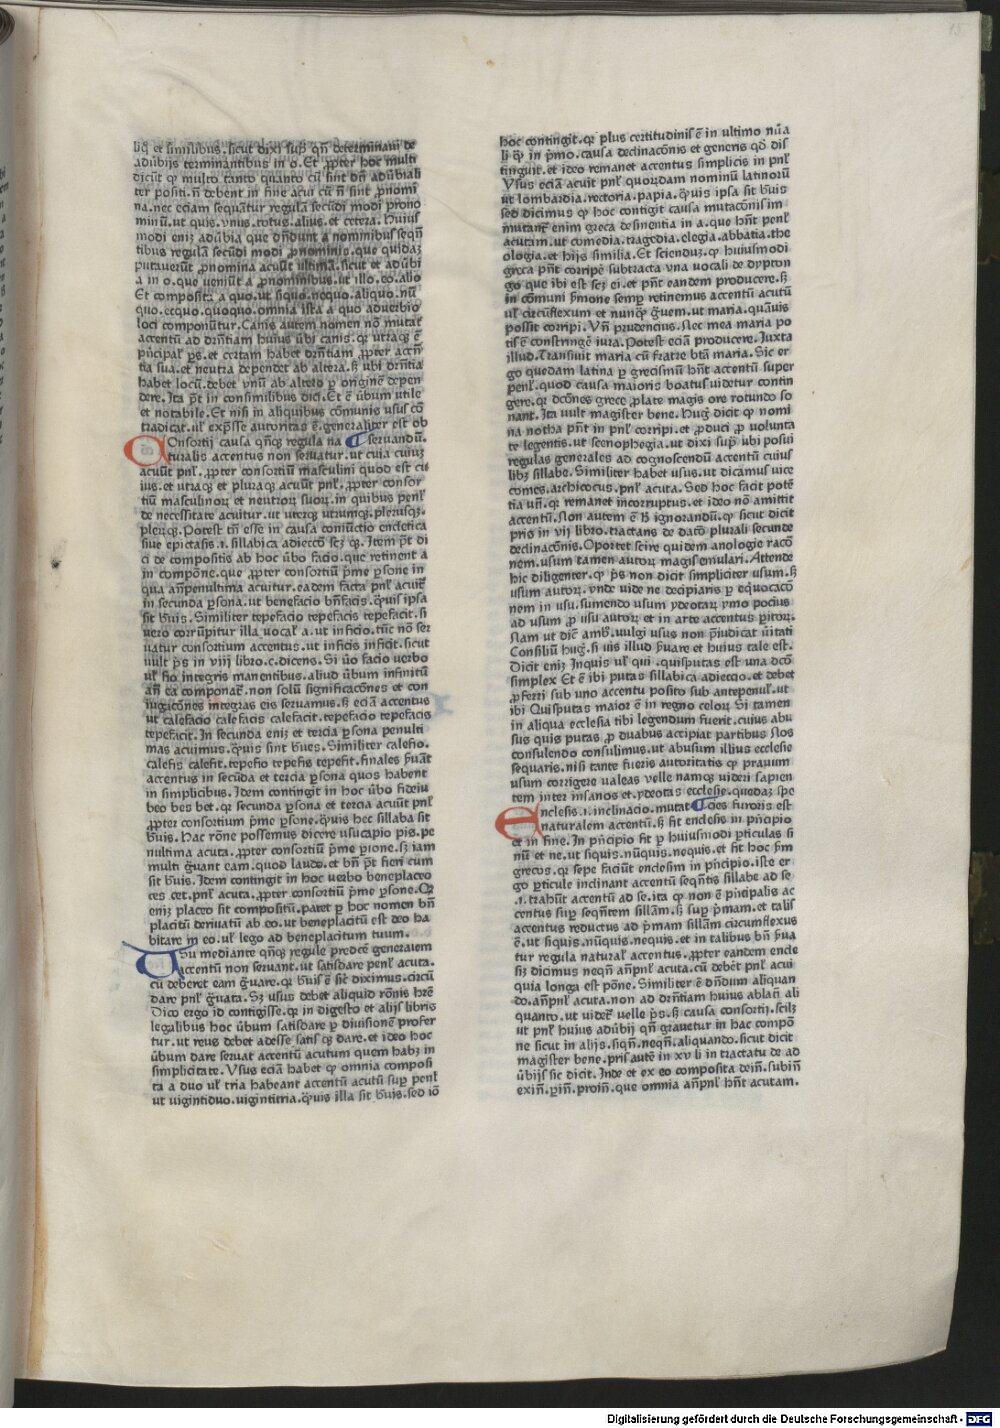 liq̃ et similibus. sicut dixi sup̄ qñ determinaui de
adũbijs terminantibus in o. Et ꝓpter hoc multi
dicũt ꝙ multo tanto quanto cũ sint dn̄ adũbiali
ter positi. n̄ debent in fine acui cũ n̄ sint ꝓnomi
na. nec eciam sequãtur regulã secũdi modi prono
minũ. ut quis. vnus. totus. alius. et cetera. Huius
modi eniꝫ adũbia que dñdunt a nominibus seqñ
tibus regulã secũdi modi ꝓnominis. que quidaꝫ
putauerũt ꝓnomina acuũt ultimã. sicut et adũbi
a in o. que veniũt a ꝓnominibus. ut illo. eo. alio
Et composita a quo. ut siquo. nequo. aliquo. nũ
quo. ecquo. quoquo. omnia ista a quo aduerbio
loci componũtur. Canis autem nomen nõ mutat
accentũ ad dr̃ntiam huius ũbi canis. qꝛ utraqꝫ ē
p̃ncipal' ꝑs. et certam habet dr̃ntiam ꝓpter accñ
tia sua. et neutra dependet ab altera. sꝫ ubi dr̃ntia
habet locũ. debet vnũ ab altero ꝑ originē depen
dere. Ita p̄t in consimilibus dici. Et ē ũbum utile
et notabile. Et nisi in aliquibus cõmunis usus cõ
tradicat. ul' exp̄sse autoritas ē. generaliter est ob
COnsortij causa qñqꝫ regula na ¶ seruandũ.
turalis accentus non seruatur. ut cuia cuiuꝫ
acuũt pnl'. ꝓpter consortiũ masculini quod est cu
ius. et utraqꝫ et pluraqꝫ acuũt pnl'. ꝓpter consor
tiũ masculinoꝝ et neutroꝝ suoꝝ. in quibus penl'
de necessitate acuitur. ut uterqꝫ utrumqꝫ. plerusqꝫ.
plerqꝫ. Potest tñ esse in causa coniũctio encletica
siue epictasis .i. sillabica adiecco seꝫ qꝫ. Item p̄t di
ci de compositis ab hoc ũbo facio. que retinent a
in compõne. que ꝓpter consortiũ p̃me ꝑsone in
qua añpenultima acuitur. eadem facta pnl' acuit̃
in secunda ꝑsona. ut benefacio bñfacis. q̃uis ipsa
sit b̃uis. Similiter tepefacio tepefacis tepefacit. si
vero corrũpitur illa vocal' a. ut inficio. tũc nõ ser
uatur consortium accentus. ut inficis inficit. sicut
uult p̃s in viij libro. c. dicens. Si ũo facio uerbo
ul' fio integris manentibus. aliud ũbum infinitũ
añ ea componat̃. non solũ significacõnes et con
iugicõnes integras eis seruamus. sꝫ eciã accentus
ut calefacio calefacis calefacit. tepefacio tepefacis
tepefacit. In secunda eniꝫ et tercia ꝑsona penulti
mas acuimus. q̃uis sint b̃ues. Similiter calefio.
calefis calefit. tepefio tepefis tepefit. finales p̃uãt
accentus in secũda et tercia ꝑsona quos habent
in simplicibus. Idem contingit in hoc ũbo fideiu
beo bes bet. qꝛ secunda ꝑsona et tercia acuũt pnl'
ꝓpter consortium p̃me ꝑsone. q̃uis hec sillaba sit
b̃uis. Hac rõne possemus dicere usucapio pis. pe
nultima acuta. ꝓpter consortiũ p̃me ꝑsone. sꝫ iam
multi g̃uant eam. quod laudo. et bñ p̄t fieri cum
sit b̃uis. Idem contingit in hoc uerbo beneplaceo
ces cet. pnl' acuta. ꝓpter consortiũ p̃me ꝑsone. Qꝛ
eniꝫ placeo sit compositũ. patet ꝑ hoc nomen bñ
placitũ deriuatũ ab eo. ut beneplacitũ est deo ha
bitare in eo. ul' lego ad beneplacitum tuum.
USu mediante qñqꝫ regule predcē generalem
accentũ non seruant. ut satisdare penl' acuta.
cũ deberet eam g̃uare. qꝛ b̃uis ē sic̃ diximus. circũ
dare pnl' g̃uata. Sꝫ usus debet aliquid rõnis hr̃e
Dico ergo id contigisse. qꝛ in digesto et alijs libris
legalibus hoc ũbum satisdare ꝑ diuisionē profer
tur. ut reus debet adesse satis qꝫ dare. et ideo hoc
ũbum dare seruat accentũ acutum quem habꝫ in
simplicitate. Vsus eciã habet ꝙ omnia composi
ta a duo ul' tria habeant accentũ acutũ sup̄ penl'
ut uigintiduo. uigintitria. q̃uis illa sit b̃uis. sed iõ
hoc contingit. qꝛ plus certitudinis ē in ultimo nũa
li q̃ꝫ in p̃mo. causa declinacõnis et generis qõ dis
tinguit. et ideo remanet accentus simplicis in pnl'
Vsus eciã acuit pnl' quorũdam nominũ latinorũ
ut lombardia. rectoria. papia. q̃uis ipsa sit b̃uis
sed dicimus ꝙ hoc contigit causa mutacõnis im
mutant̃ enim greca desinentia in a. que hñt penl'
acutam. ut comedia. tragedia. elegia. abbatia. the
ologia. et hijs similia. Et sciendũꝫ. ꝙ huiusmodi
greca pñt corripē subtracta vna vocali de dypton
go que ibi est seꝫ ei. et pñt eandem producere. sꝫ
in cõmuni p̃mone semꝑ retinemus accentũ acutũ
ul' circũflexum et nunq̃ g̃uem. ut maria. quãuis
possit corripi. Vñ prudencius. Nec mea maria po
tis ē constringē iura. Potest eciã producere. Iuxta
illud. Transiuit maria cũ fratre btã maria. Sic er
go quedam latina ꝑ grecismũ hñt accentũ super
penl'. quod causa maioris boatus uidetur contin
gere. qꝛ dcõnes grece ꝓlate magis ore rotundo so
nant. Ita uult magister bene. Hug̃ dicit ꝙ nomi
na notha pñt in pnl' corripi. et ꝓduci ꝓ volunta
te legentis. ut scenophegia. ut dixi sup̄ ubi posui
regulas generales ad cognoscendũ accentũ cuius
libꝫ sillabe. Similiter habet usus. ut dicamus vice
comes. archicocus. pnl' acuta. Sed hoc facit potē
tia vñ. qꝛ remanet incorruptus. et ideo nõ amittit
accentũ. Non autem ē h̄ ignorandũ. ꝙ sicut dicit
pris in vij libro. tractans de dacõ plurali secunde
declinacõnis. Oportet scire quidem anologie racõ
nem. usum tamen autoꝝ magis emulari. Attende
hic diligenter. ꝙ p̃s non dicit simpliciter usum. sꝫ
usum autoꝝ. vnde uide ne decipiaris ꝑ eq̃uocacõ
nem in usu. sumendo usum ydeotaꝝ ymo pocius
ad usum ꝓ usu autoꝝ et in arte accentus ꝑitoꝝ.
Nam ut dic̃ amb̃. uulgi usus non p̃iudicat ũitati
Consiliũ hug̃. si uis illud p̃uare et huius tale est.
Dicit eniꝫ Inquis ul' qui .quisputas est una dcõ
simplex Et ē ibi putas sillabica adiecco. et debet
ꝓferri sub uno accentu posito sub antepenul'. ut
ibi Quisputas maior ē in regno celoꝝ Si tamen
in aliqua ecclesia tibi legendum fuerit. cuius abu
sus quis putas ꝓ duabus accipiat partibus Nos
consulendo consulimus. ut abusum illius ecclesie
sequaris. nisi tante fueris autoritatis ꝙ prauum
usum corrigere ualeas velle namqꝫ videri sapien
tem inter insanos et ydeotas ecclesie. quedaꝫ spe
ENclesis .i. inclinacio. mutat ¶ cies furoris est
naturalem accentũ. sꝫ fit enclesis in p̃ncipio
et in fine. In p̃ncipio fit ꝑ huiusmodi ꝑticulas si
nũ et ne. ut siquis. nũquis. nequis. et fit hoc p̃m
grecos. qꝛ sepe faciũt enclesim in p̃ncipio. iste er
go ꝑticule inclinant accentũ seqñtis sillabe ad se.
.i. trahũt accentũ ad se. ita ꝙ non ē p̃ncipalis ac
centus sup̄ seqñtem sillãm. sꝫ sup̄ p̃mam. et talis
accentus reductus ad p̃mam sillãm circumflexus
ē. ut siquis. nũquis. nequis. et in talibus bñ p̃ua
tur regula natural' accentus. ꝓpter eandem encle
siꝫ dicimus neqñ añpnl' acuta. cũ debēt pnl' acui
quia longa est põne. Similiter ē dñdum aliquan
do. añpnl' acuta. non ad dr̃ntiam huius ablañ ali
quanto. ut videt̃ velle p̃s. sꝫ causa consortij. scilꝫ
ut pnl' huius adũbij qñ grauetur in hac compõ
ne sicut in alijs. siqñ. neqñ. aliquando. sicut dicit
magister bene. pris autē in xv li in tractatu de ad
ũbijs sic dicit. Inde et ex eo composita deiñ. subiñ
exiñ. ꝑiñ. proiñ. que omnia añpnl' hñt acutam.
Digitalisierung gefördert durch die Deutsche Forschungsgemeinschaft - DFG